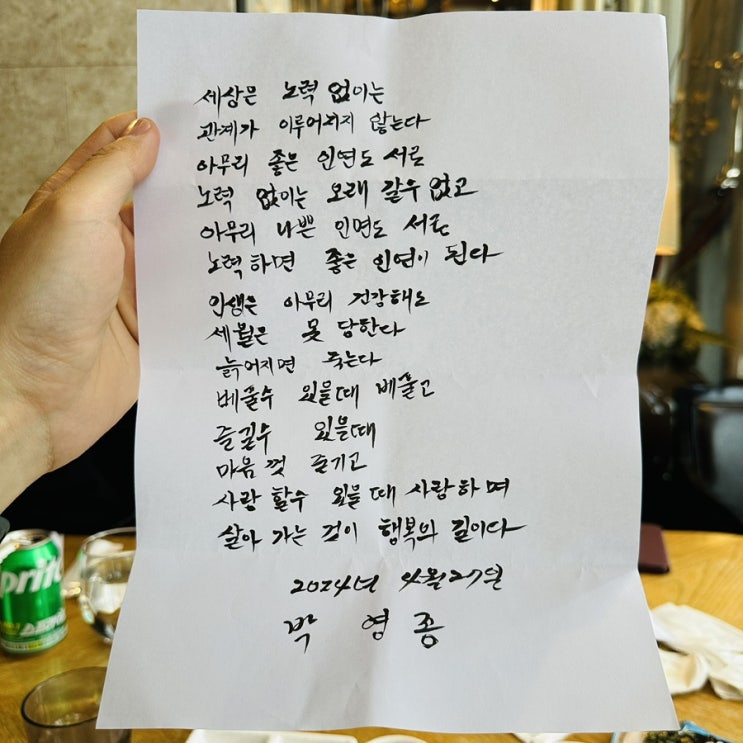 세상은 노력 없이는
관계가 이루어지지 않는다
아무리 좋은 인연도 서로
노력 없이는 오래 갈수 없고
아무리 나쁜 인연도 서로
노력하면 좋은 인연이 된다
인생은 아무리 건강해도
세월은 못 당한다
늙어지면 죽는다
베풀수 있을때 베풀고
즐길수 있을때
마음 껏 즐기고
사랑 할수 있을때 사랑하며
살아 가는 것이 행복의 길이다
2024년 4월27일
박 영 종